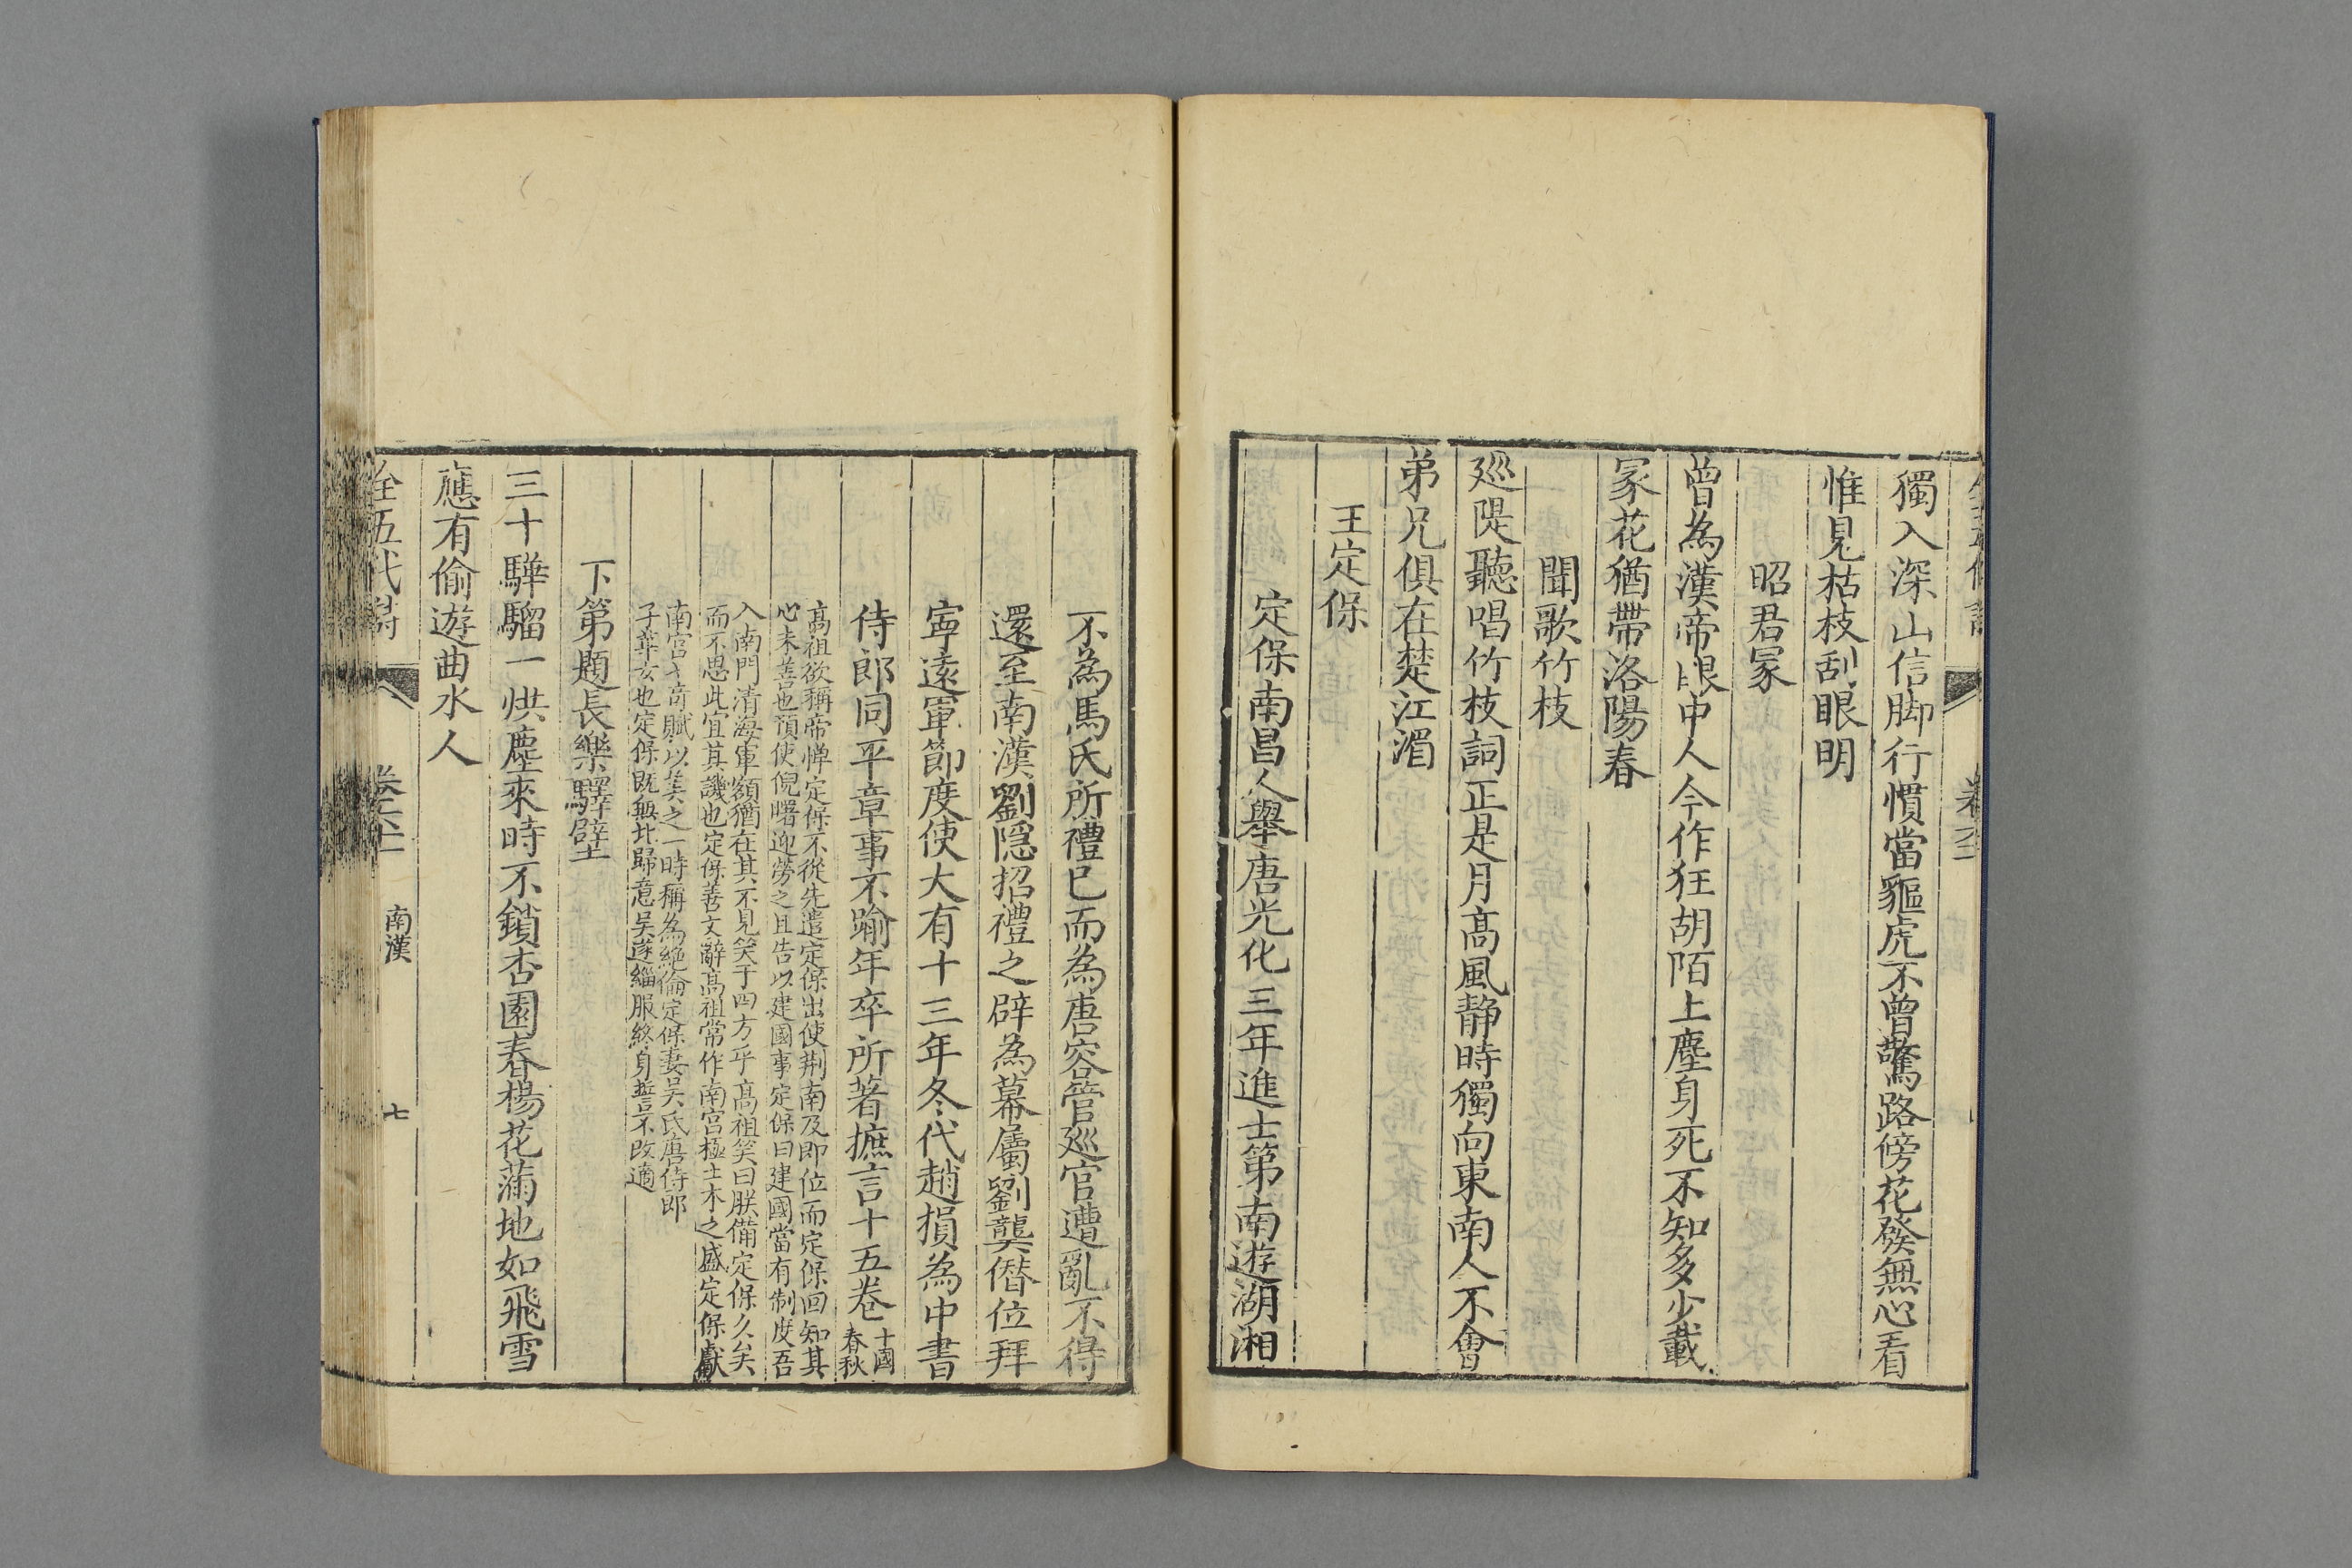 獨入深山信脚行慣當貙虎不曾驚路傍花發無心看
惟見枯枝刮眼明
昭君冢
曾為漢帝眼中人今作狂胡陌上塵身死不知多少載
冢花猶帶洛陽春
聞歌竹枝
廵隄聽唱竹枝詞正是月高風静時獨向東南人不會
弟兄俱在楚江湄
王定保
定保南昌人舉唐光化三年進士第南遊湖湘
不為馬氏所禮已而為唐容管廵官遭亂不得
還至南漢劉隱招禮之辟為幕屬劉龑僭位拜
寧遠軍節度使大有十三年冬代趙損為中書
侍郎同平章事不踰年卒所著摭言十五卷
十國
春秋
高祖欲稱帝憚定保不從先遣定保出使荆南及即位而定保回知其
心未善也預使倪曙迎勞之且告以建國事定保曰建國當有制度吾
入南門清海軍額猶在其不見笑于四方乎高祖笑曰朕備定保久矣
而不思此宜其譏也定保善文辭高祖常作南宫極土木之盛定保獻
南宫七奇賦以美之一時稱為絶倫定保妻吴氏唐侍郎
子華女也定保既無北歸意吴遂緇服終身誓不改適
下第題長樂驛壁
三十驊騮一烘塵來時不鎖杏園春楊花滿地如飛雪
應有偷遊曲水人
全五代詩
南漢
七